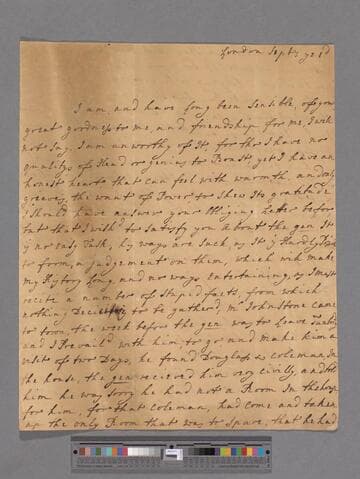 London Sept: ye 1d
I am and have long been sensible, of your
great goodness to me, and friendship for me, I will
not say, I am unworthy of It, for tho I have no
quality of Head or Genius to Boast, yet I have an
honest heart that can feel with warmth, and only
greaves, the want of Power to shew Its gratitude
I should have answer your Obliging Letter before
but that I wish'd to satisfy you About the gen. It is
no easy Task, his ways are such, as It is Hardly
to form, a judgement on them, which will make
my History Long, and no ways Entertaining, as I must
recite a number of stupid facts, from which
nothing to be gathered, Mr Johnstone came
to town, the week before the gen was to leave
and I Prevail'd with him to go and make him a
visit of two Days, he found Douglass & Coleman, In
the house, the gen received him very civilly, and told
him he was sorry he had not a Room In the house
for him, for that Coleman, had come and taken
up the only Room that was to spare, that he had